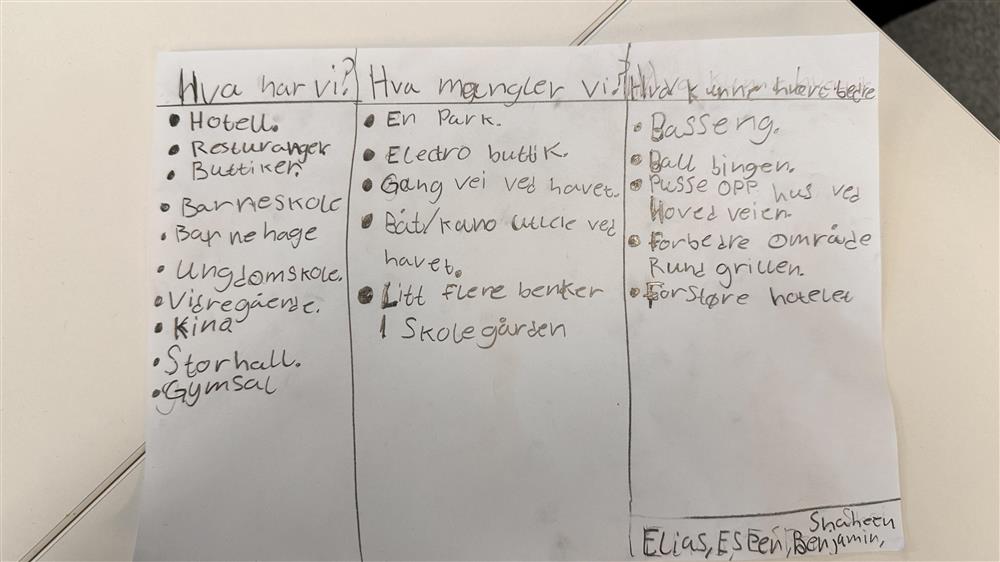 Hva har vi?
• Hotell.
• Resturanger
• Buttiker.
• Barneskole
• Barnehage
• Ungdomskole.
• Vidregående.
• Kina
• Storhall.
• Gymsal
Hva mangler vi?
• En Park.
• Electro buttik.
• Gang vei ved havet.
• Båt/kano utleie ved
havet.
• Litt flere benker
I Skolegården
Hva kunne hvert bedre
• Basseng.
• Ball bingen.
• Pusse OPP hus ved
Hoved veien.
• Forbedre område
Rund grillen.
• Forstøre hotelet
Shaheen
Elias, Espen, Benjamin,